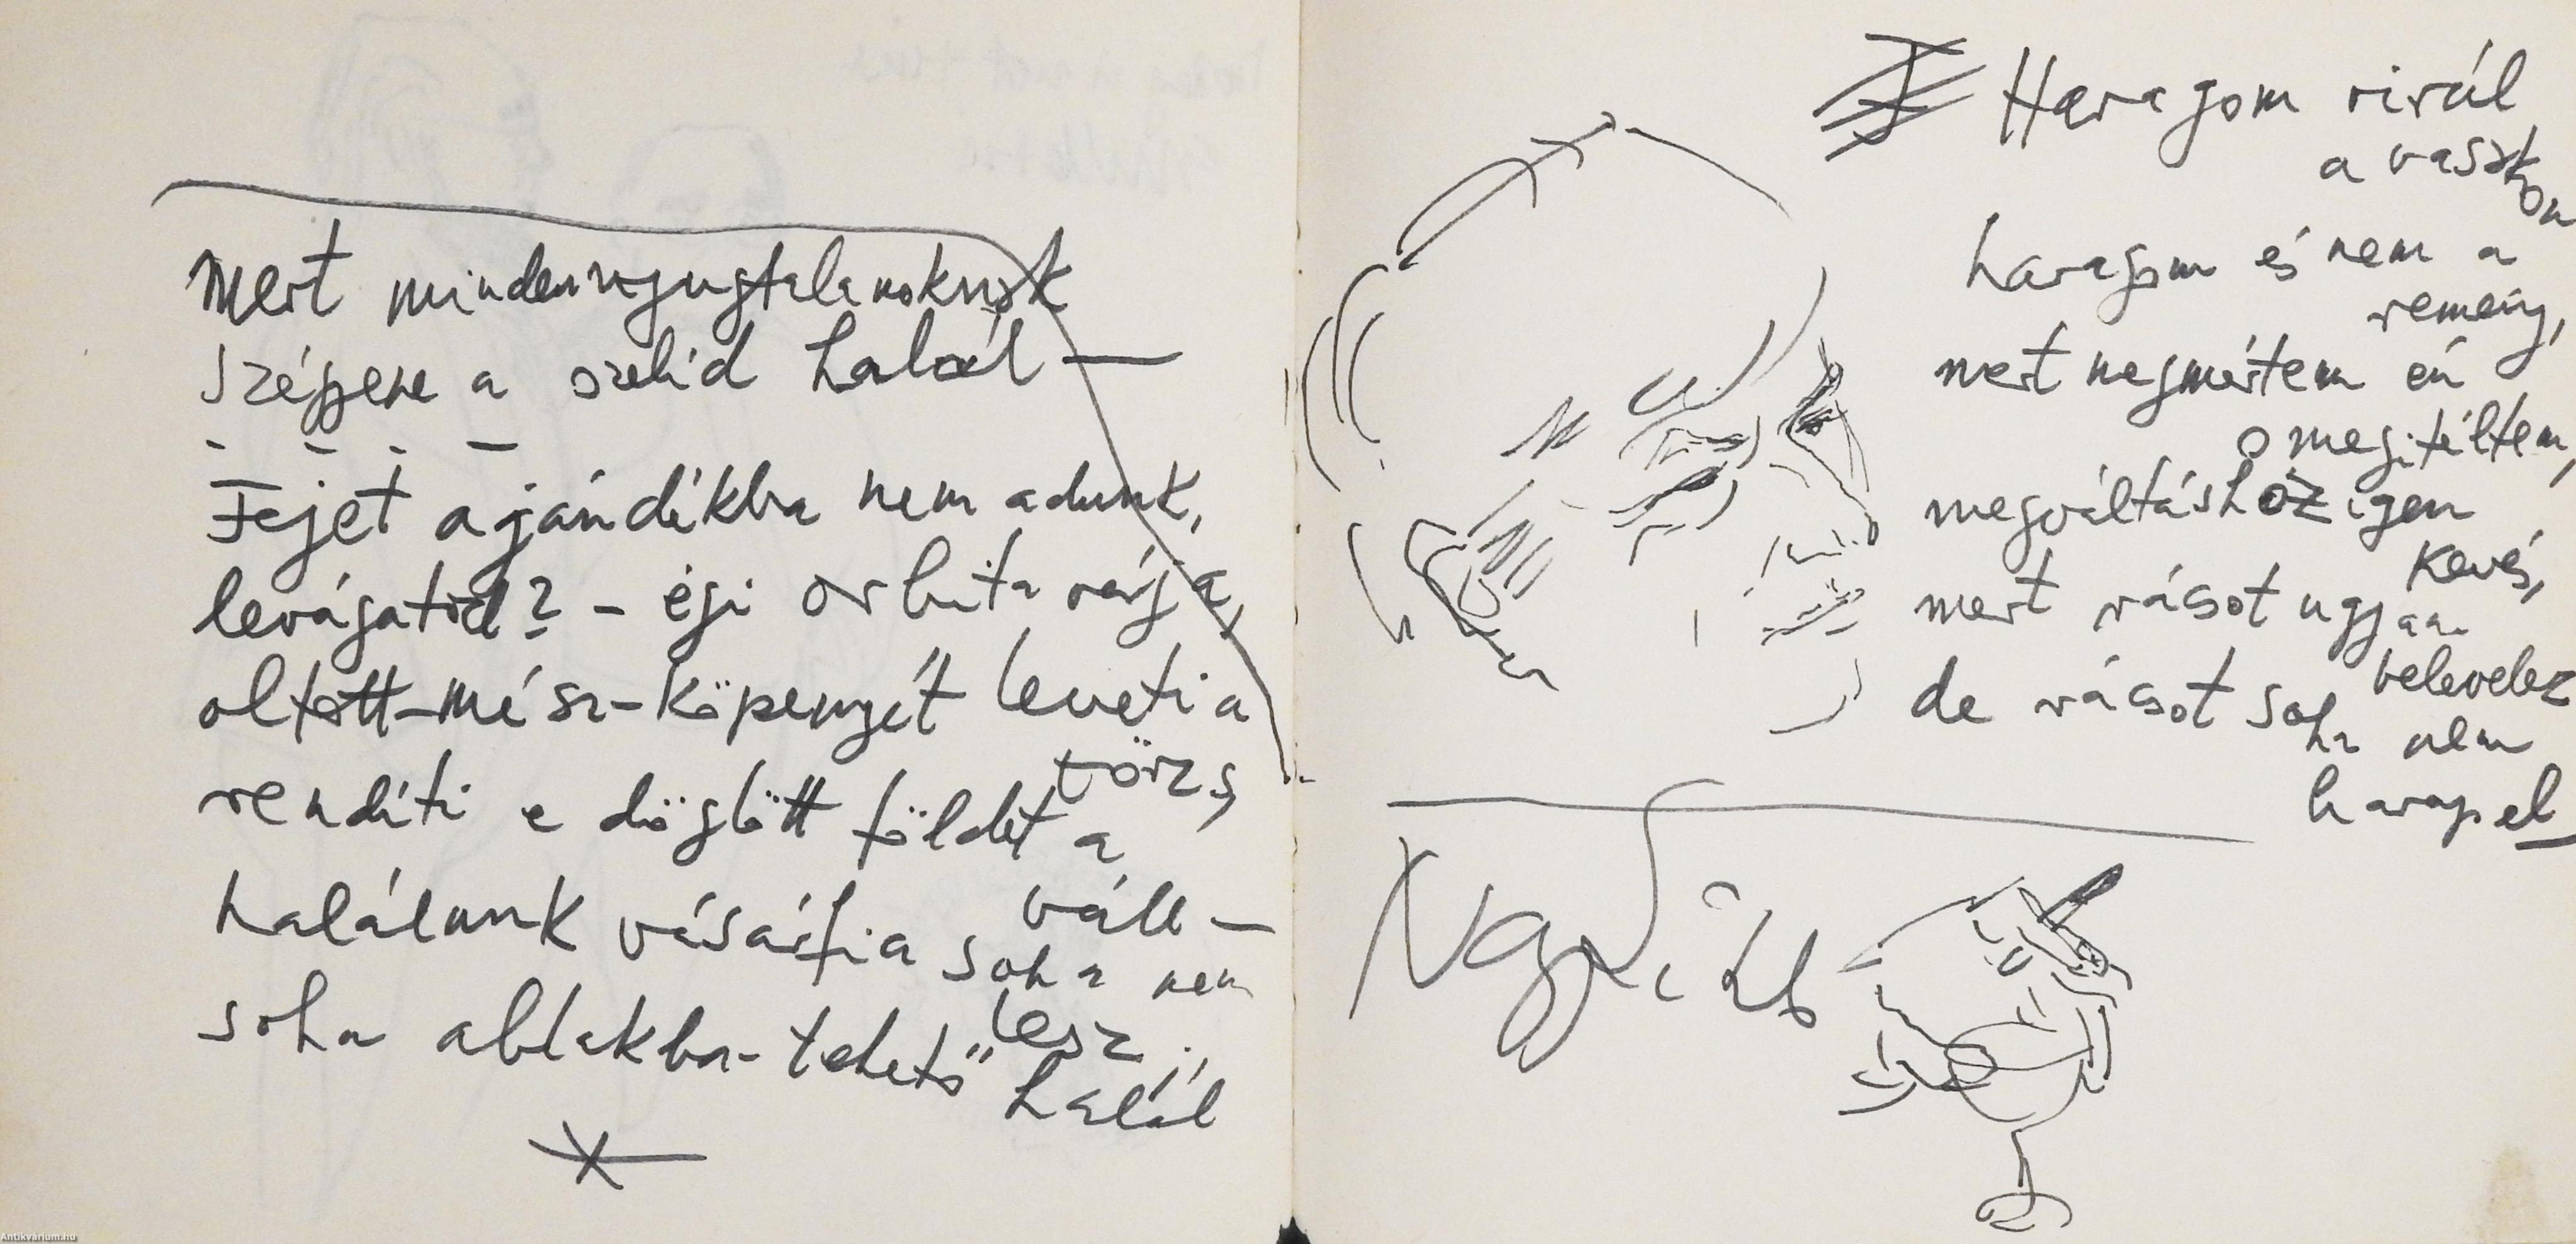 Mert minden nyugtalanoknak
szégyene a szelid halál —
- - - —
Fejet ajándékba nem adunk,
levágatod? - égi orbita várja,
oltott-mész-köpenyét leveti a
törzs,
rendíti e döglött földet a
váll —
halálunk vásárfia soha nem
lesz.,
soha ablakba-tehető halál
Haragom rivál
a vasakon
haragom és nem a
remény,
mert megmértem én
megitéltem,
megváltáshoz igen
kevés,
mert rácsot ugyan
belevelez
de rácsot soha nem
harap el
Antikvarium.hu